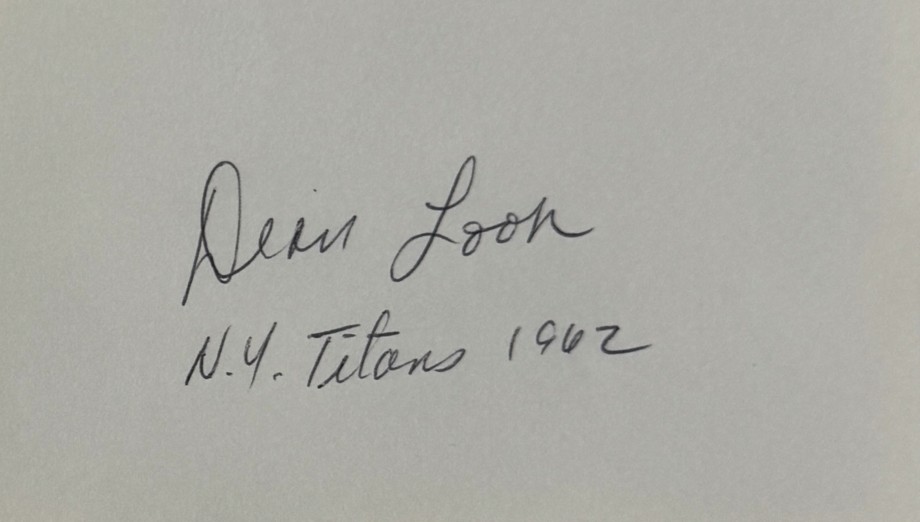 Dean Look
N.Y. Titans 1962